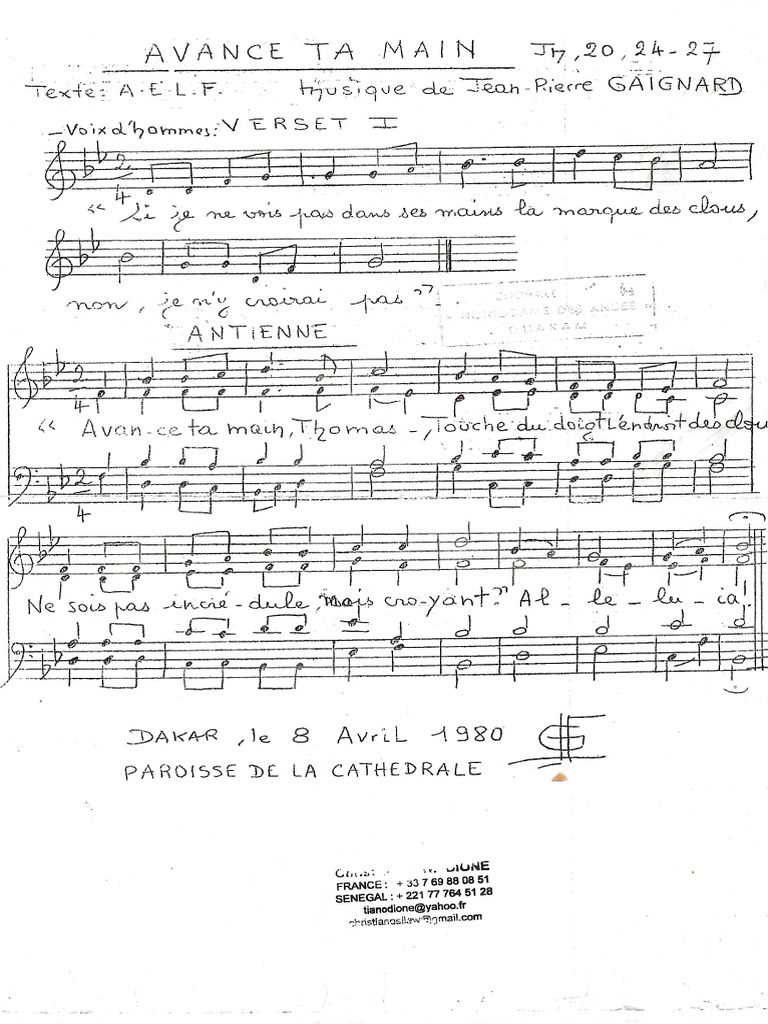 AVANCE TA MAIN Jn, 20, 24-27
Texte: A.E.L.F. Musique de Jean-Pierre GAIGNARD
- Voix d'hommes: VERSET I
2/4
"Si je ne vois pas dans ses mains la marque des clous,
non, je n'y croirai pas".
ANTIENNE
2/4
"Avan-ce ta main, Thomas -, Touche du doigt l'endroit des clou
2/4
Ne sois pas incré-dule, mais cro-yant". Al - le - lu - ia!
DAKAR, le 8 Avril 1980
PAROISSE DE LA CATHEDRALE
DIONE
FRANCE : + 33 7 69 88 08 51
SENEGAL : + 221 77 764 51 28
tianodione@yahoo.fr